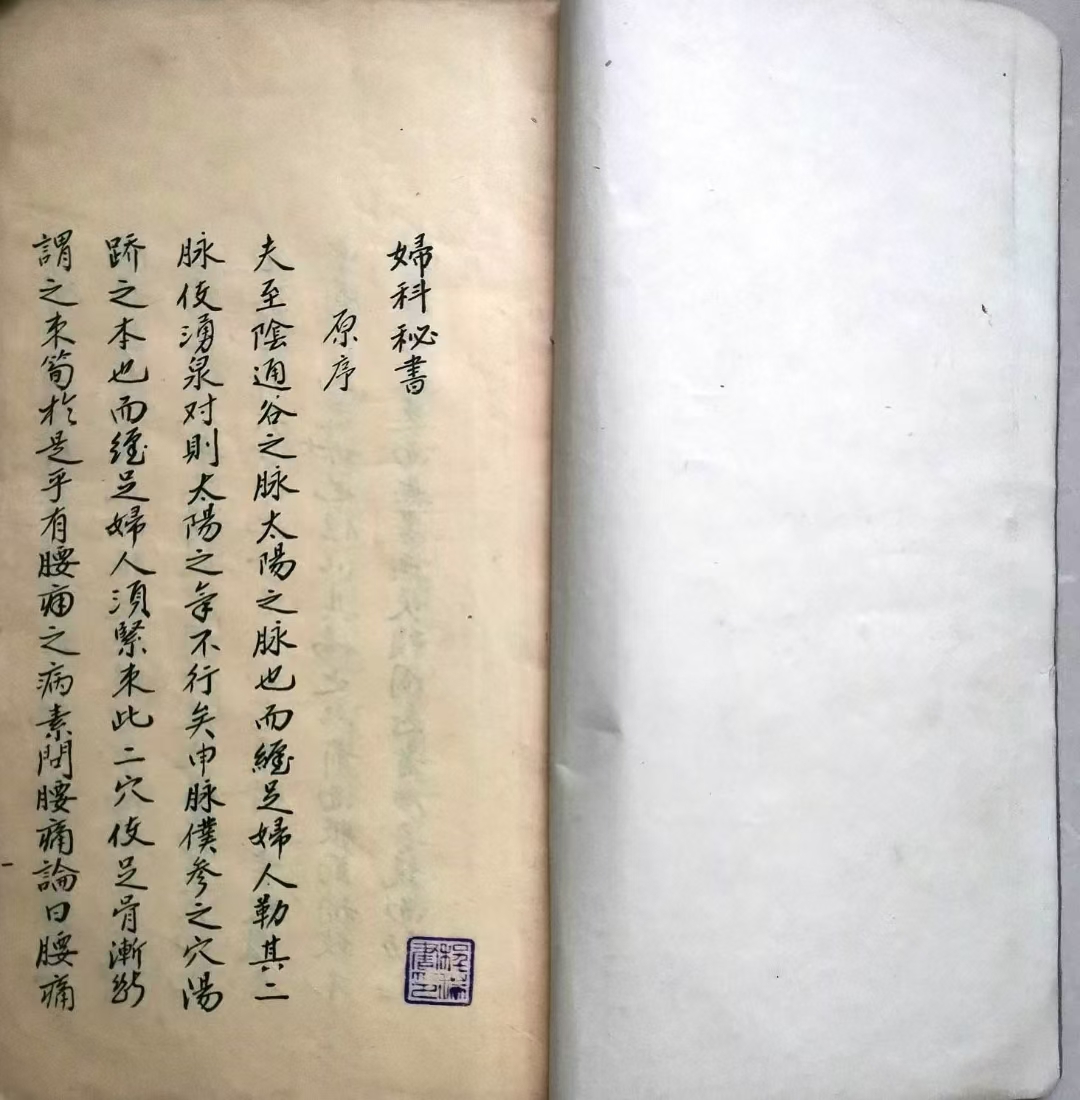 婦科秘書
原序
夫至陰通谷之脉太陽之脉也而纏足婦人勒其二
脉使湧泉对則太陽之氣不行矣申脉僕參之穴陽
跻之本也而纏足婦人須緊束此二穴使足骨漸断
謂之束筍於是乎有腰痛之病素問腰痛論曰腰痛